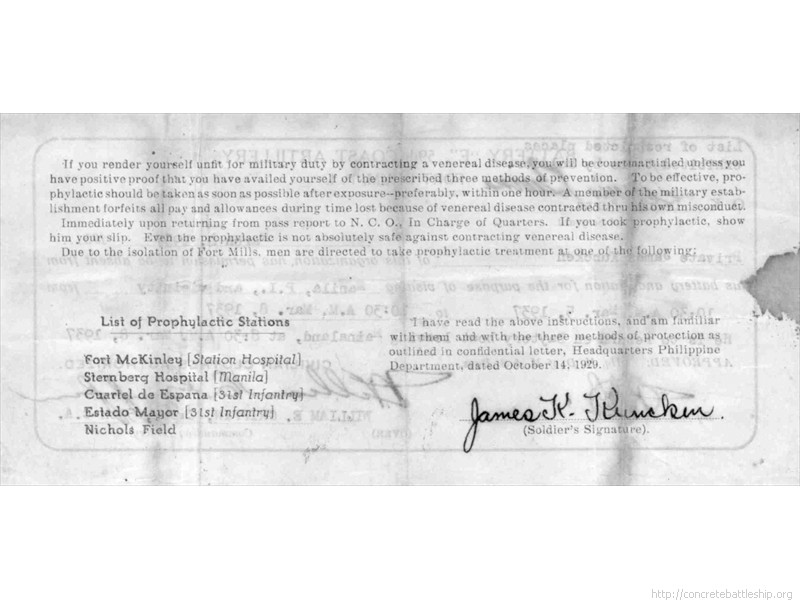 If you render yourself unfit for military duty by contracting a venereal disease, you will be courtmartialed unless you
have positive proof that you have availed yourself of the prescribed three methods of prevention. To be effective, pro-
phylactic should be taken as soon as possible after exposure--preferably, within one hour. A member of the military estab-
lishment forfeits all pay and allowances during time lost because of venereal disease contracted thru his own misconduct.
Immediately upon returning from pass report to N. C. O., In Charge of Quarters. If you took prophylactic, show
him your slip. Even the prophylactic is not absolutely safe against contracting venereal disease.
Due to the isolation of Fort Mills, men are directed to take prophylactic treatment at one of the following:
List of Prophylactic Stations
Fort McKinley (Station Hospital)
Sternberg Hospital (Manila)
Cuartel de Espana (31st Infantry)
Estado Mayor (31st Infantry)
Nichols Field
I have read the above instructions, and am familiar
with them and with the three methods of protection as
outlined in confidential letter, Headquarters Philippine
Department, dated October 14, 1929.
James K. Kuncken.
(Soldier's Signature).
http://concretebattleship.org